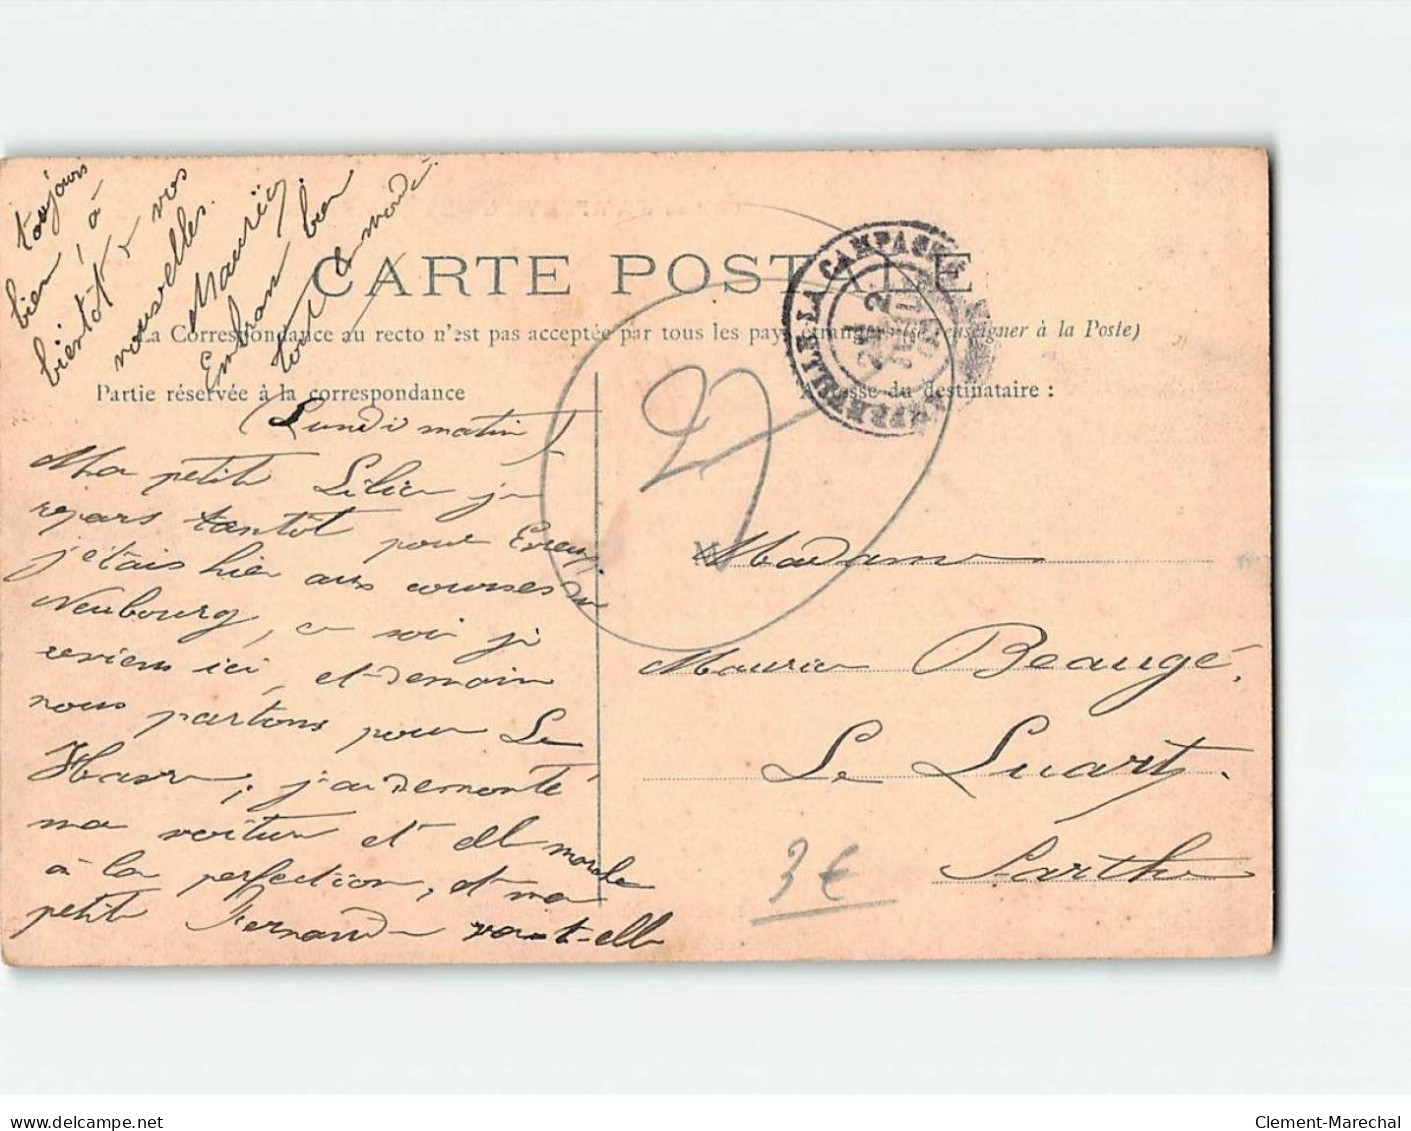 CARTE POSTALE
La Correspondance au recto n'est pas acceptée par tous les pays étrangers (se renseigner à la Poste)
Partie réservée à la correspondance
Adresse du destinataire :
LA CAMPAGNE
27
Lundi matin
Ma petite Lilia je
repars tantôt pour Evreux
j'étais hier aux courses au
Neubourg, ce soir je
reviens ici, et demain
nous partons pour Le
Havre, j'ai demonté
ma voiture et elle marche
à la perfection, et ma
petite Fernande va-t-elle
toujours
bien, à
bientôt de vos
nouvelles.
Maurice
Embrasse bien
tout le monde.
Madame
Maurice Beaugé.
Le Luart.
Sarthe
3€
www.delcampe.net
Clement-Marechal